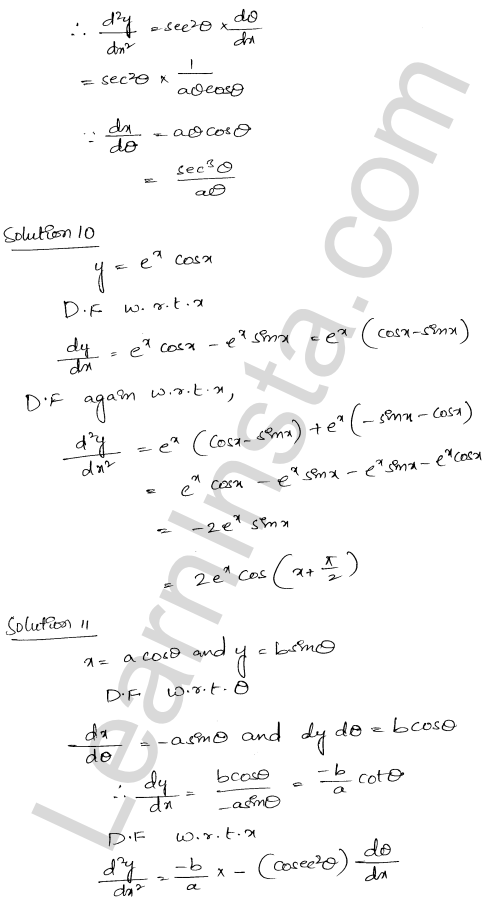 ∴ d²y/dx² = sec²θ × dθ/dx
= sec²θ × 1/aθcosθ
∵ dx/dθ = aθcosθ
= sec³θ/aθ
Solution 10
y = eˣ cosx
D.F w.r.t.x
dy/dx = eˣ cosx - eˣ sinx = eˣ (cosx-sinx)
D.F again w.r.t.x,
d²y/dx² = eˣ (cosx-sinx) + eˣ (-sinx-cosx)
= eˣ cosx - eˣ sinx - eˣ sinx - eˣ cosx
= -2eˣ sinx
= 2eˣ cos (x+ π/2)
Solution 11
x = a cosθ and y = bsinθ
D.F w.r.t.θ
dx/dθ = -asinθ and dy dθ = bcosθ
∴ dy/dx = bcosθ/-asinθ = -b/a cotθ
D.F w.r.t.x
d²y/dx² = -b/a × - (cosec²θ) dθ/dx
LearnInsta.com